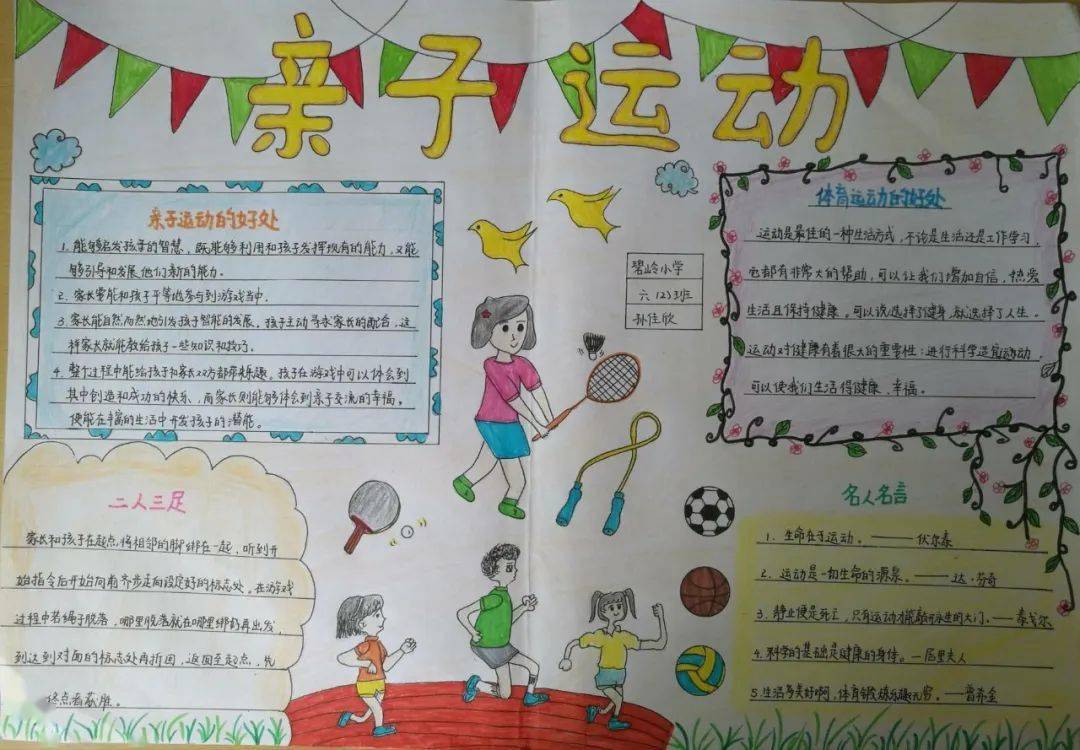 亲子运动
亲子运动的好处
1. 能够启发孩子的智慧，既能够利用和孩子发挥现有的能力，又能
够引导和发展他们新的能力。
2. 家长要能和孩子平等地参与到游戏当中。
3. 家长能自然而然地引发孩子智能的发展。孩子主动寻求家长的配合，这
样家长就能教给孩子一些知识和技巧。
4. 整个过程中能给孩子和家长双方都带来乐趣。孩子在游戏中可以体会到
其中创造和成功的快乐，而家长则能够体会到亲子交流的幸福。
使能在丰富的生活中开发孩子的潜能。
碧岭小学
六（2）班
孙佳欣
体育运动的好处
运动是最佳的一种生活方式，不论是生活还是工作学习，
它都有非常大的帮助，可以让我们增加自信，热爱
生活且保持健康。可以说选择了健身，就选择了人生。
运动对健康有着很大的重要性：进行科学适宜运动
可以使我们生活得健康、幸福。
二人三足
家长和孩子在起点将相邻的脚绑在一起，听到开
始指令后开始向前齐步走向设定好的标志处。在游戏
过程中若绳子脱落，哪里脱落就在哪里绑好再出发，
到达到对面的标志处再折回，返回至起点，先
终点者获胜。
名人名言
1. 生命在于运动。——伏尔泰
2. 运动是一切生命的源泉。——达·芬奇
3. 静止便是死亡，只有运动才能敲开永生的大门。——泰戈尔
4. 科学的基础是健康的身体。—居里夫人
5. 生活多美好啊，体育锻炼乐趣无穷。—普希金